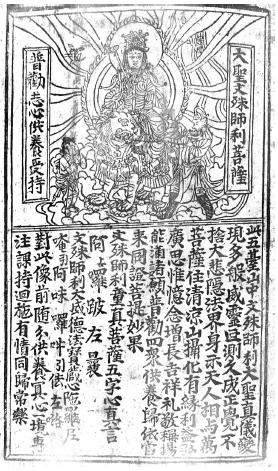 大聖文殊師利菩薩
普勸志心供養受持
此五臺山中文殊師利大聖真儀變
現多般威靈叵測久成正覺不
捨大悲隱法界身示天人相與萬
菩薩住清涼山攝化有緣利益弘
廣思惟憶念增長吉祥禮敬稱揚
能滿諸願普勸四眾供養歸依當
來同證菩提妙果
文殊師利童真菩薩五字心真言
阿上囉 跛 左 曩
文殊師利大威德法寶藏心陀羅尼
唵引阿味囉吽引佉左洛
對此像前隨分供養冥心境專
注課持迴施有情同歸常樂